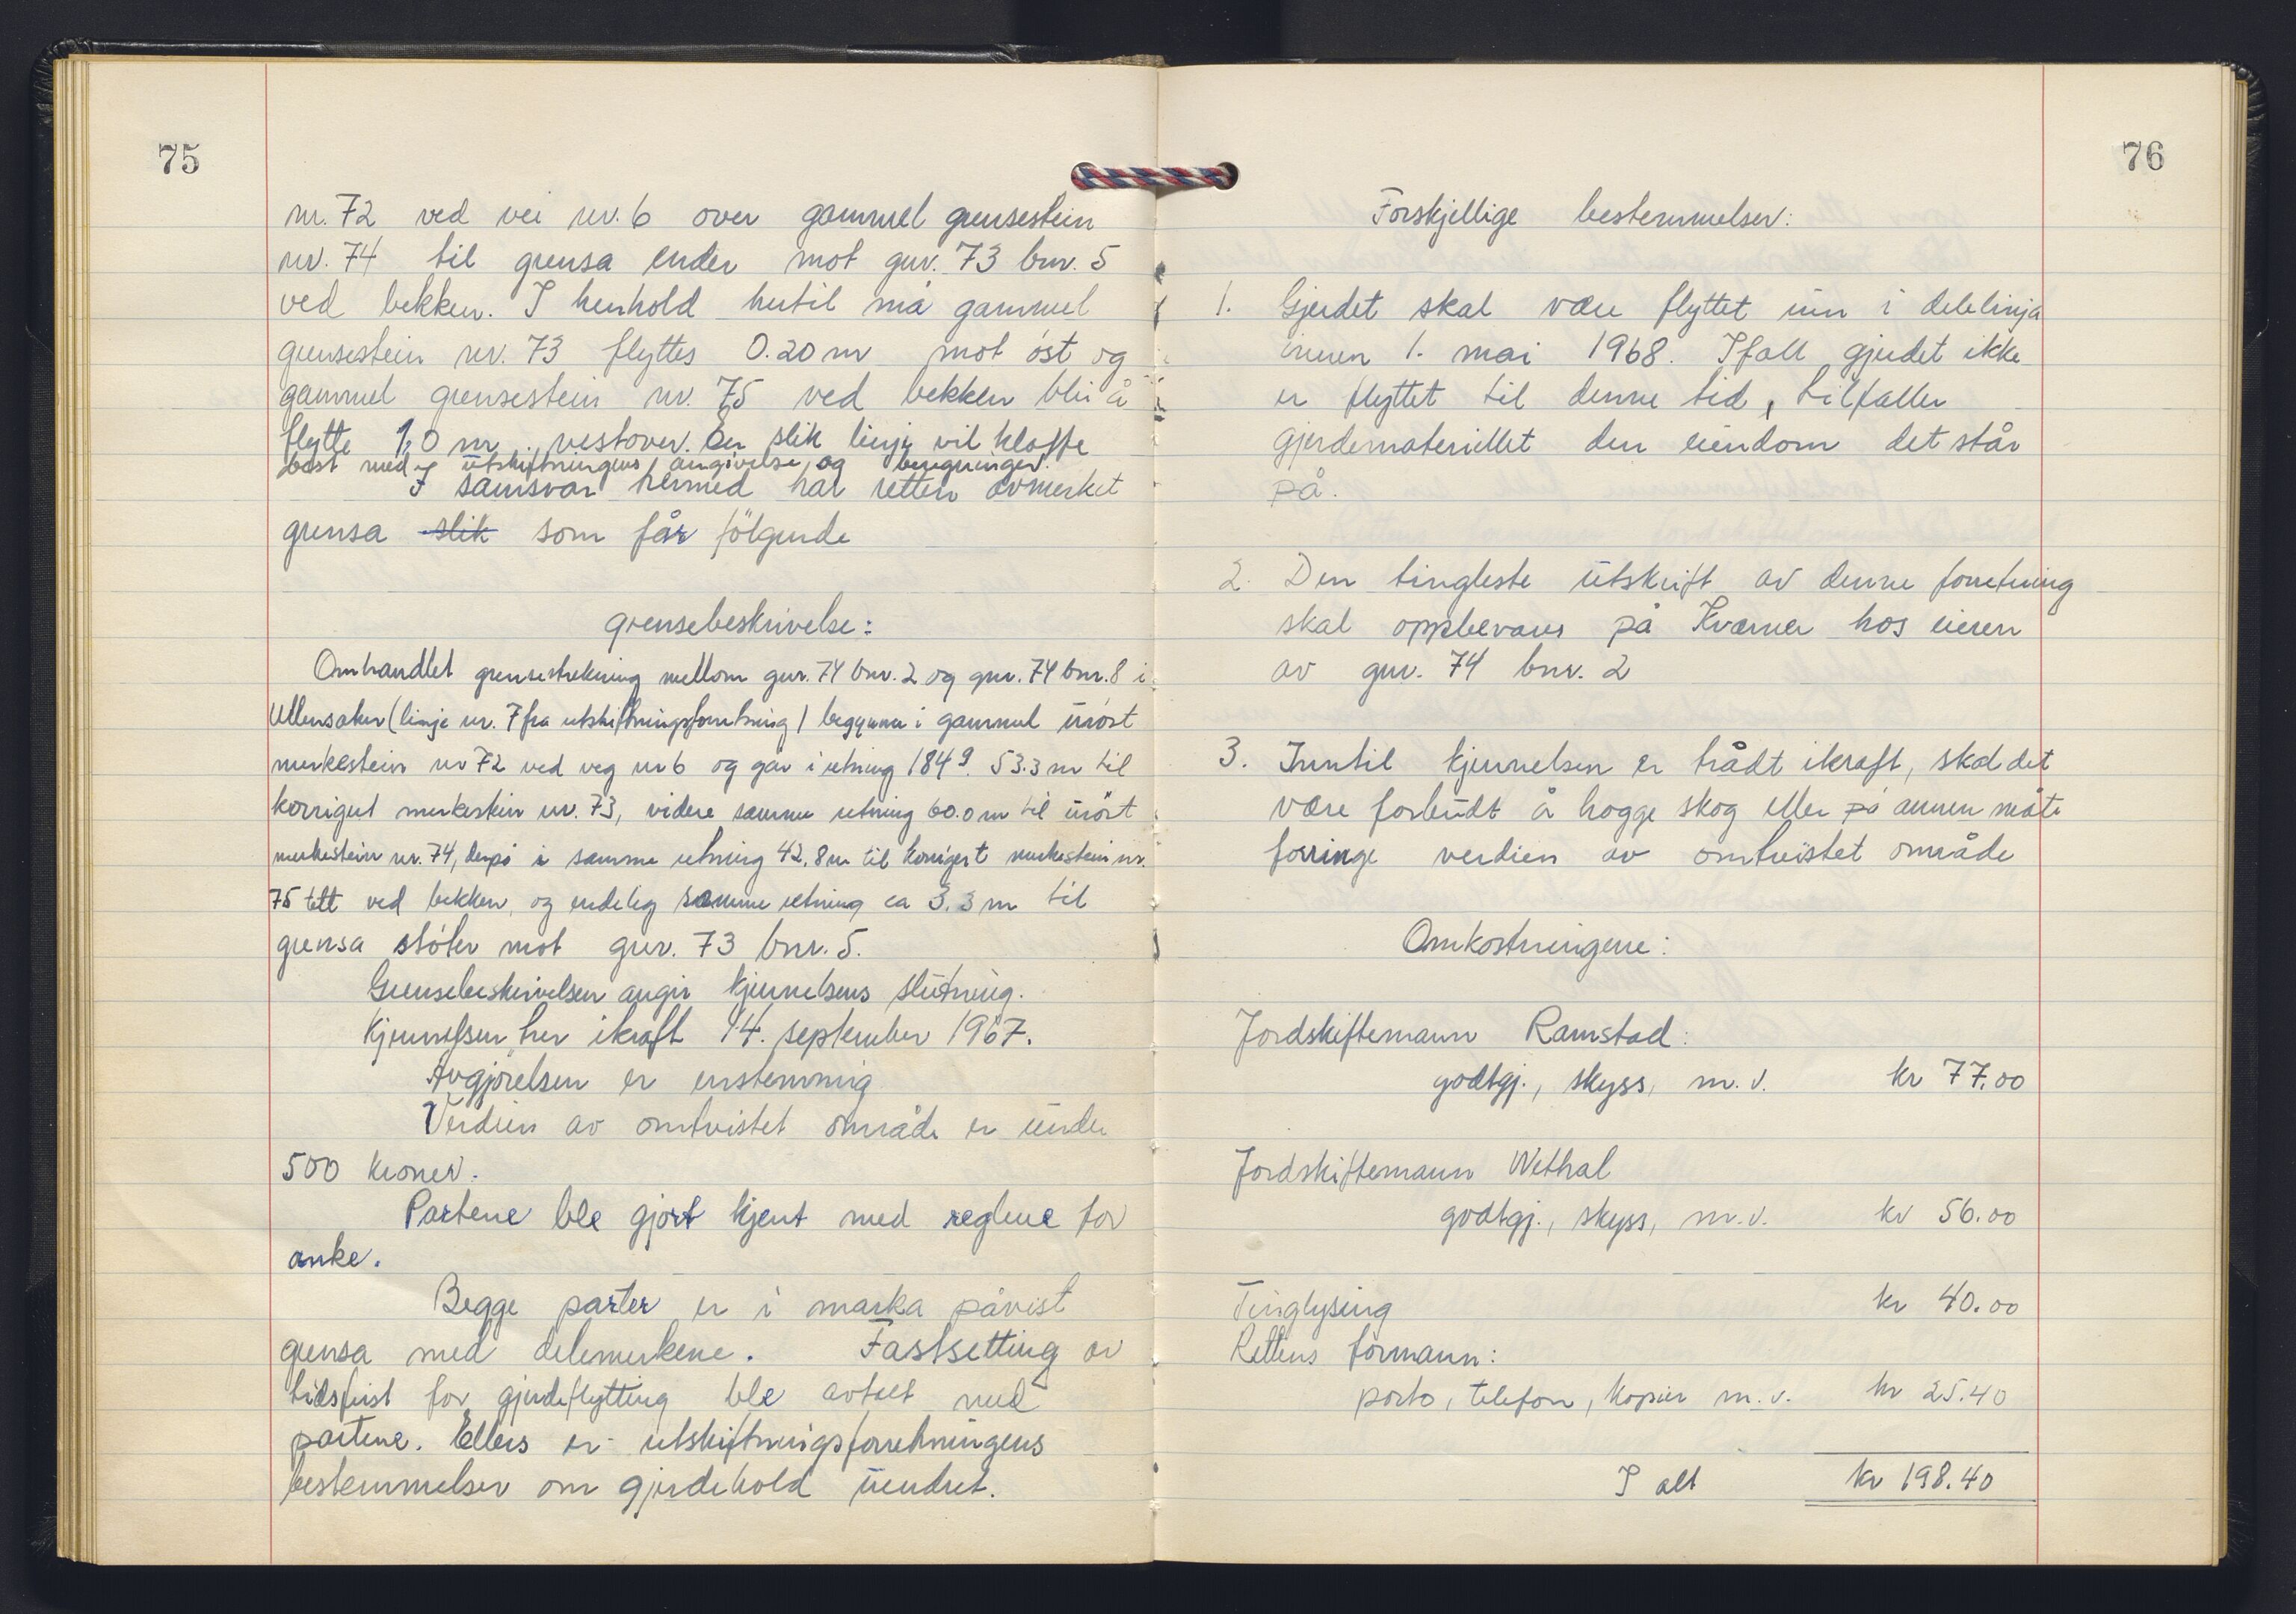 75
nr. 72 ved vei nr. 6 over gammel grensestein
nr. 74 til grensa ender mot gnr. 73 bnr. 5
ved bekken. I henhold hertil må gammel
grensestein nr. 73 flyttes 0.20 m mot öst og
gammel grensestein nr. 75 ved bekken blir å
flytte 1,0 m vestover. En slik linje vil klaffe
best med utskiftningens angivelse og beregninger.
I samsvar hermed har retten avmerket
grensa slik som får fölgende
grensebeskrivelse:
Omhandlet grensestrekning mellom gnr. 74 bnr. 2 og gnr. 74 bnr. 8 i
Ullensaker (linje nr. 7 fra utskiftningsforretning) begynner i gammel urört
merkestein nr 72 ved veg nr 6 og går i retning 184 g. 53.3 m til
korrigert merkestein nr. 73, videre samme retning 60.0 m til urört
merkestein nr. 74, derpå i samme retning 42,8 m til korrigert merkestein nr.
75 tett ved bekken, og endelig samme retning ca 3.3 m til
grensa stöter mot gnr. 73 bnr. 5.
Grensebeskrivelsen angir kjennelsens slutning.
Kjennelsen trer ikraft 14. september 1967.
Avgjörelsen er enstemmig
Verdien av omtvistet område er under
500 kroner.
Partene ble gjort kjent med reglene for
anke.
Begge parter er i marka påvist
grensa med delemerkene. Fastsetting av
tidsfrist for gjerdeflytting ble avtalt med
partene. Ellers er utskiftningsforretningens
bestemmelser om gjerdehold uendret.
76
Forskjellige bestemmelser:
1. Gjerdet skal være flyttet inn i delelinja
innen 1. mai 1968. Ifall gjerdet ikke
er flyttet til denne tid, tilfaller
gjerdematerialet den eiendom det står
på.
2. Den tingleste utskrift av denne forretning
skal oppbevares på Kværner hos eieren
av gnr. 74 bnr. 2
3. Inntil kjennelsen er trådt ikraft, skal det
være forbudt å hogge skog eller på annen måte
forringe verdien av omtvistet område
Omkostningene:
Jordskiftemann Ramstad:
godtgj., skyss, m.v. kr 77.00
Jordskiftemann Wethal
godtgj., skyss, m.v. kr 56.00
Tinglysing kr 40.00
Rettens formann:
porto, telefon, kopier m.v. kr 25.40
I alt kr 198.40